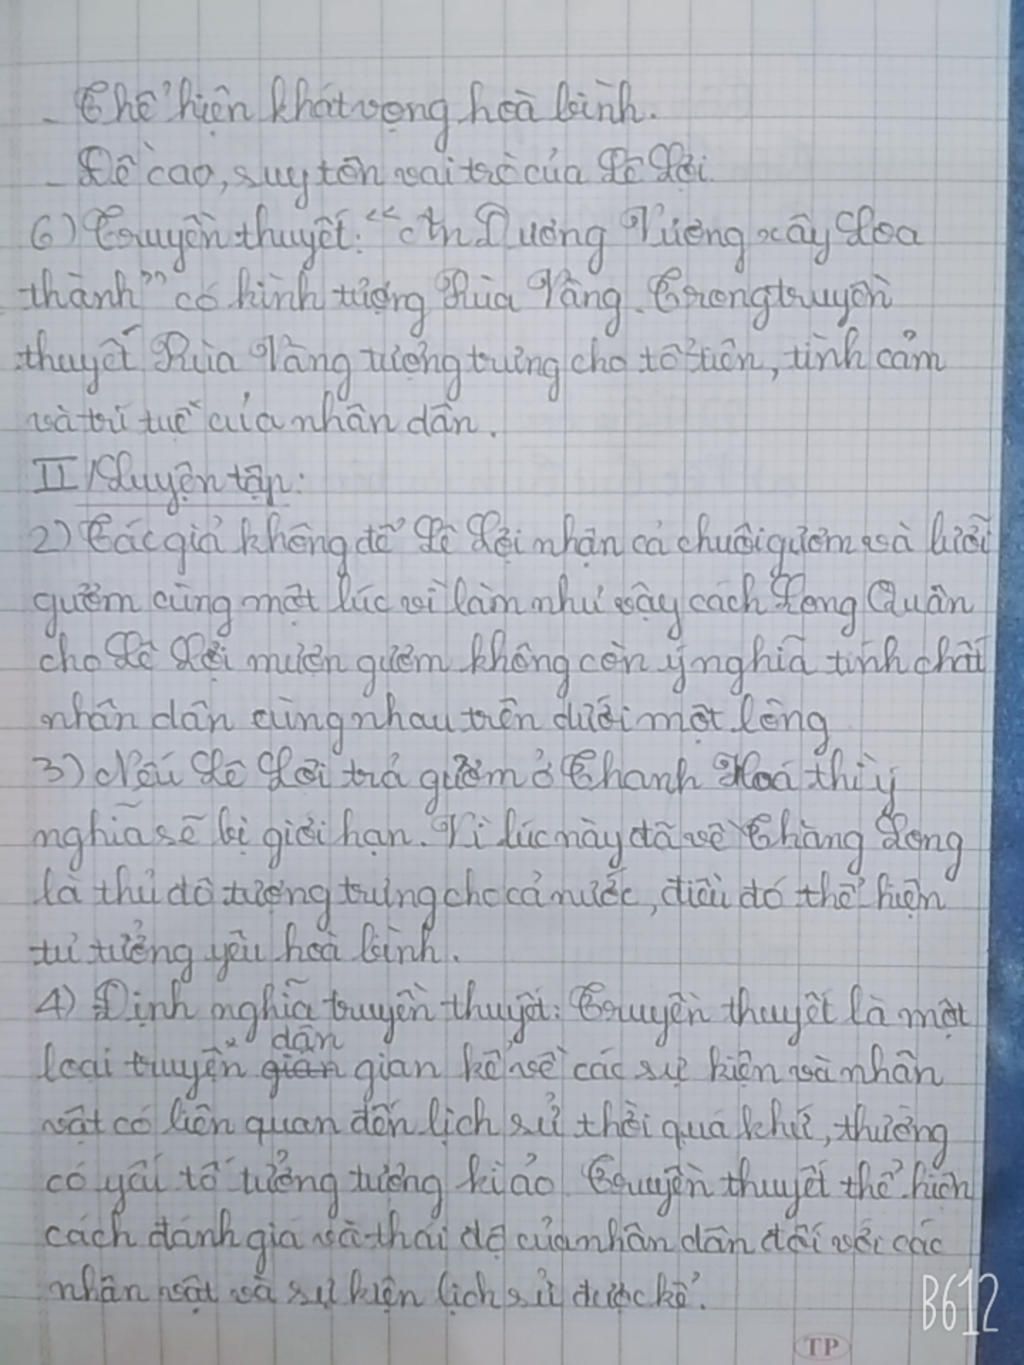 - Thể hiện khát vọng hoà bình.
- Đề cao, suy tôn vai trò của Lê Lợi.
6) Truyền thuyết: "An Dương Vương xây Loa
thành" có hình tượng Rùa Vàng. Trong truyền
thuyết Rùa Vàng tượng trưng cho tổ tiên, tình cảm
và trí tuệ của nhân dân.
II/ Luyện tập:
2) Tác giả không để Lê Lợi nhận cả chuôi gươm và lưỡi
gươm cùng một lúc vì làm như vậy cách Long Quân
cho Lê Lợi mượn gươm không còn ý nghĩa tính chất
nhân dân cùng nhau trên dưới một lòng
3) Nếu Lê Lợi trả gươm ở Thanh Hoá thì ý
nghĩa sẽ bị giới hạn. Vì lúc này đã về Thăng Long
là thủ đô tượng trưng cho cả nước, điều đó thể hiện
tư tưởng yêu hoà bình.
4) Định nghĩa truyền thuyết: Truyền thuyết là một
dân
loại truyện gian gian kể về các sự kiện và nhân
vật có liên quan đến lịch sử thời quá khứ, thường
có yếu tố tưởng tượng kì ảo. Truyền thuyết thể hiện
cách đánh giá và thái độ của nhân dân đối với các
nhân vật và sự kiện lịch sử được kể.
B612
TP